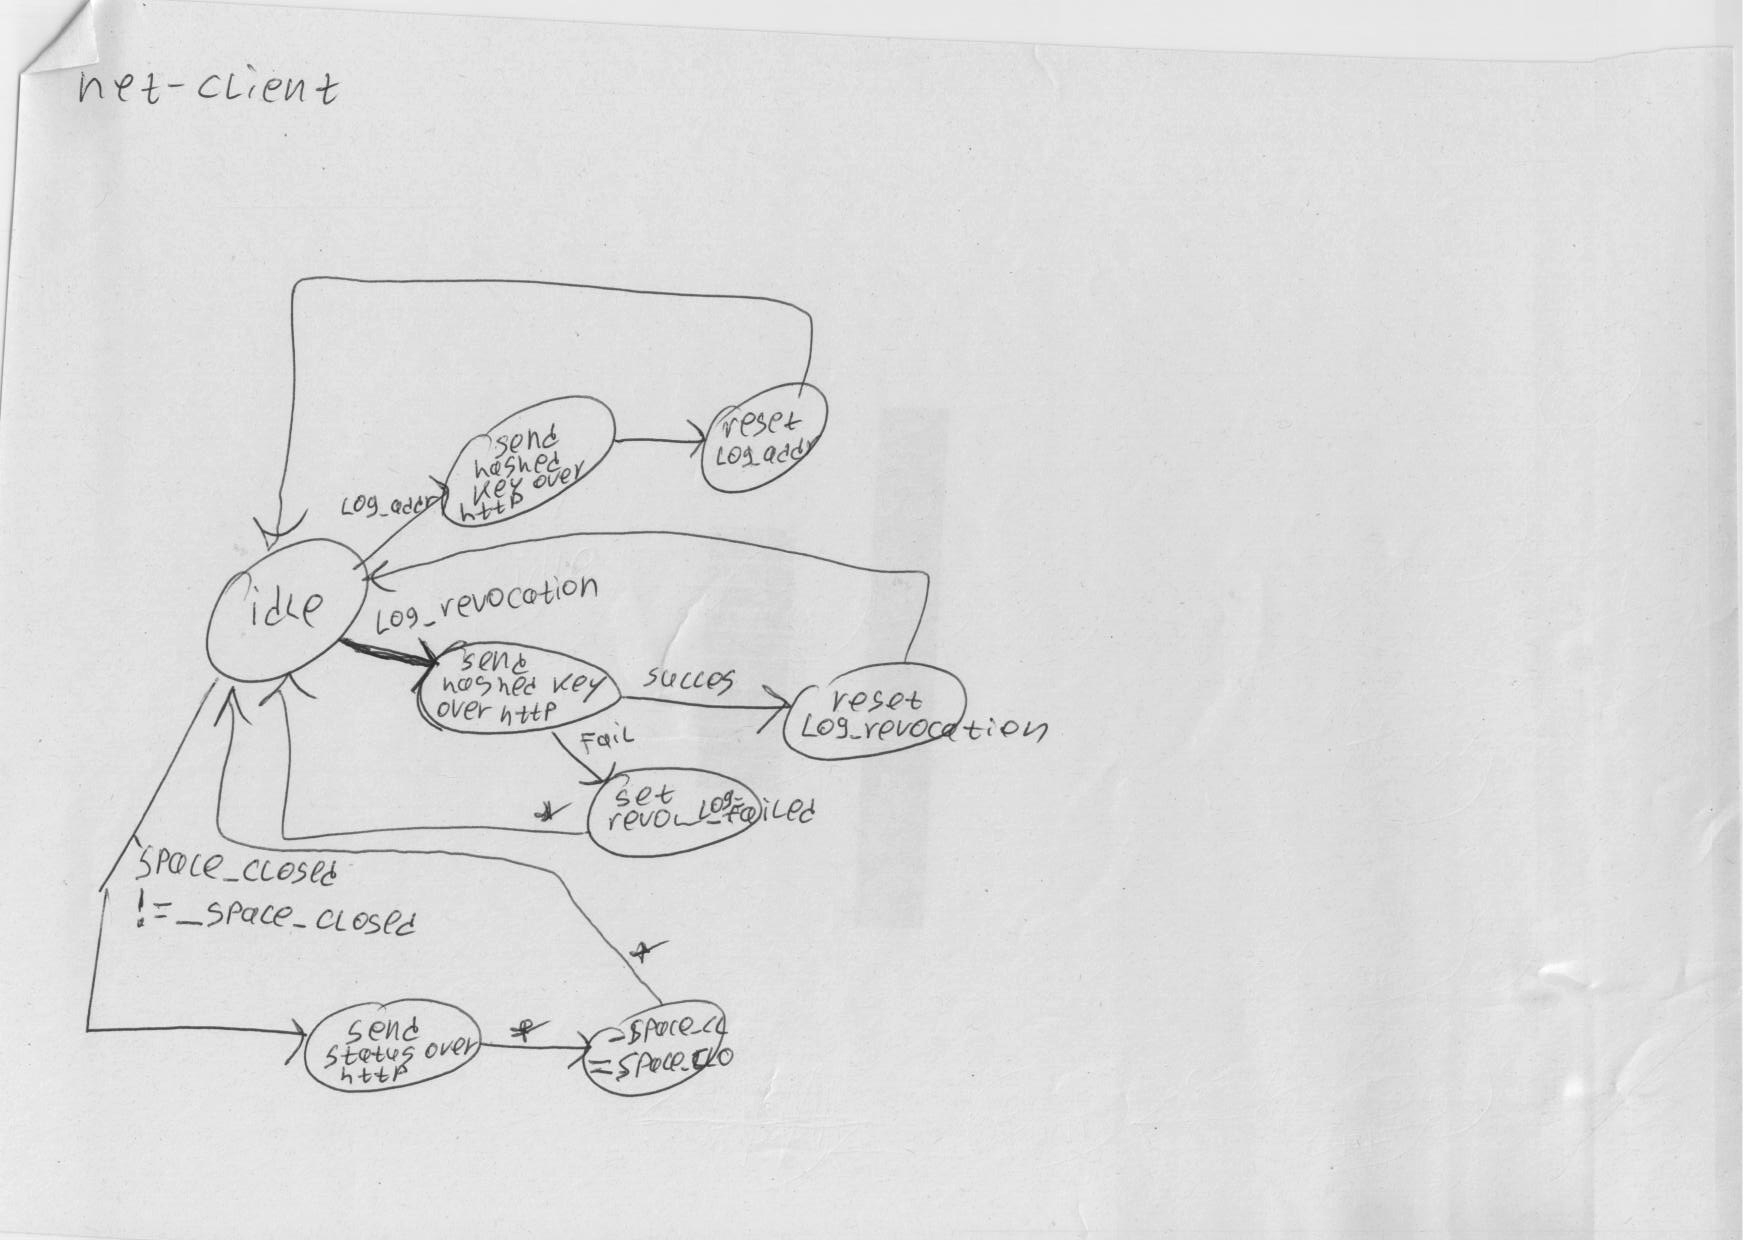 net-client
send
hashed
key over
http
reset
Log_addr
Log_addr
idle
Log_revocation
send
hashed key
over http
succes
reset
Log_revocation
Fail
set
revo__Log_failed
*
space_closed
!=_space_closed
*
send
status over
http
*
_space_cl
=space_clo